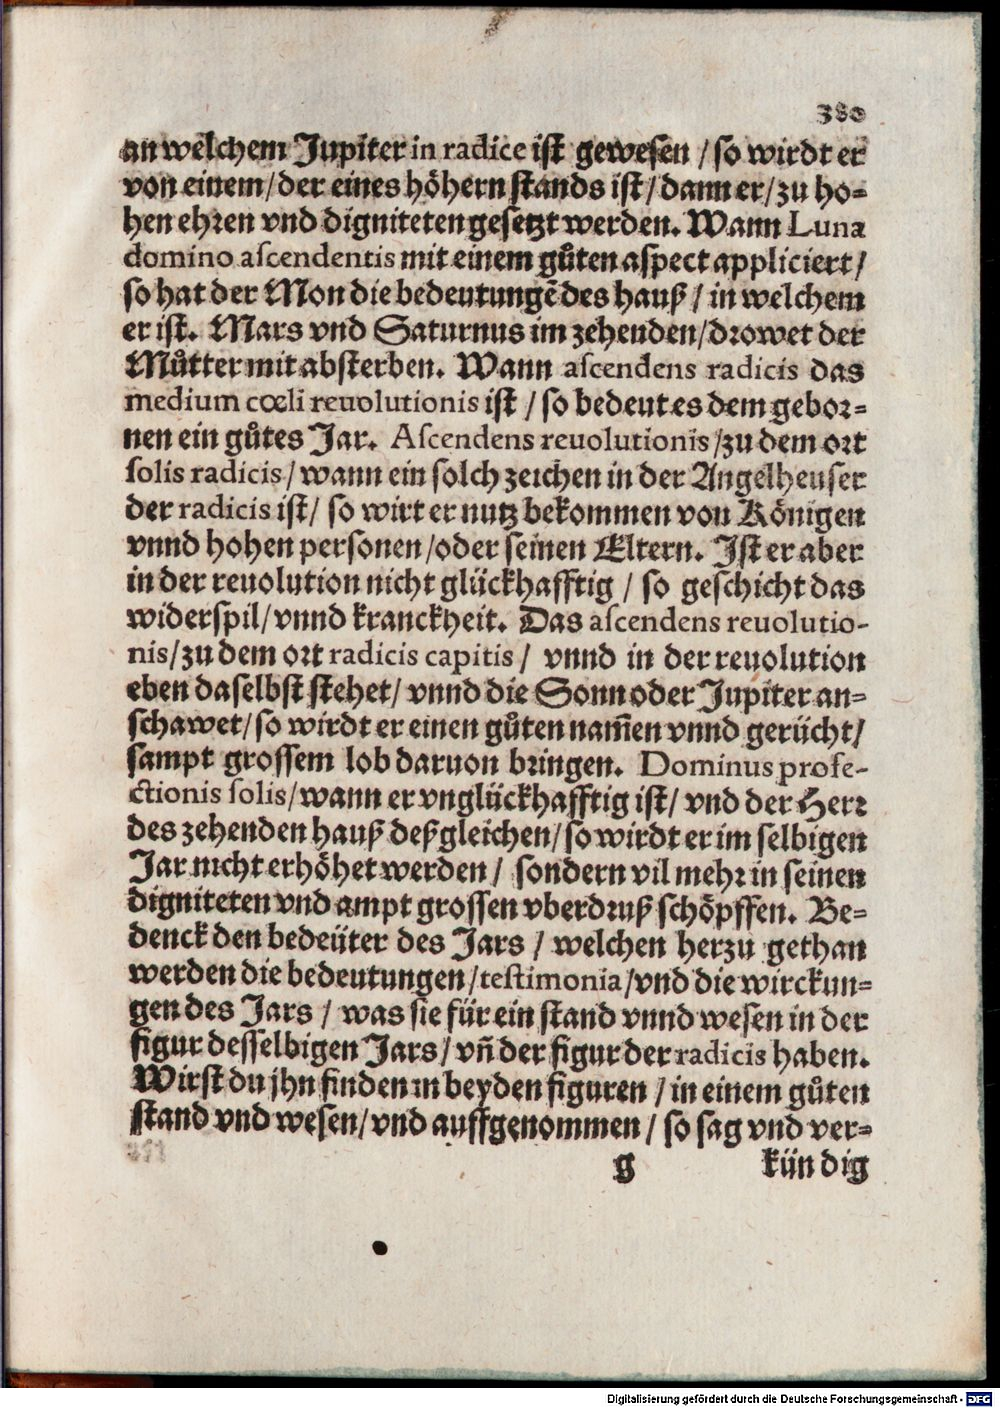 380
an welchem Jupiter in radice ist gewesen / so wirdt er
von einem/der eines höhern stands ist/dann er/zu ho-
hen ehren vnd digniteten gesetzt werden. Wann Luna
domino ascendentis mit einem gůten aspect appliciert/
so hat der Mon die bedeutungẽ des hauß / in welchem
er ist. Mars vnd Saturnus im zehenden/drowet der
Můtter mit absterben. Wann ascendens radicis das
medium cœli reuolutionis ist / so bedeut es dem gebor-
nen ein gůtes Jar. Ascendens reuolutionis/zu dem ort
solis radicis/wann ein solch zeichen in der Angelheuser
der radicis ist/ so wirt er nutz bekommen von Königen
vnnd hohen personen/oder seinen Eltern. Ist er aber
in der reuolution nicht glückhafftig / so geschicht das
widerspil/vnnd kranckheit. Das ascendens reuolutio-
nis/zu dem ort radicis capitis / vnnd in der reuolution
eben daselbst stehet/ vnnd die Sonn oder Jupiter an-
schawet/so wirdt er einen gůten nam̃en vnnd gerücht/
sampt grossem lob daruon bringen. Dominus profe-
ctionis solis/wann er vnglückhafftig ist/ vnd der Herr
des zehenden hauß deßgleichen/so wirdt er im selbigen
Jar nicht erhöhet werden / sondern vil mehr in seinen
digniteten vnd ampt grossen vberdruß schöpffen. Be-
denck den bedeüter des Jars / welchen herzu gethan
werden die bedeutungen/testimonia/vnd die wirckun-
gen des Jars / was sie für ein stand vnnd wesen in der
figur desselbigen Jars/ vñ der figur der radicis haben.
Wirst du jhn finden in beyden figuren / in einem gůten
stand vnd wesen/vnd auffgenommen / so sag vnd ver-
g kündig
Digitalisierung gefördert durch die Deutsche Forschungsgemeinschaft - DFG